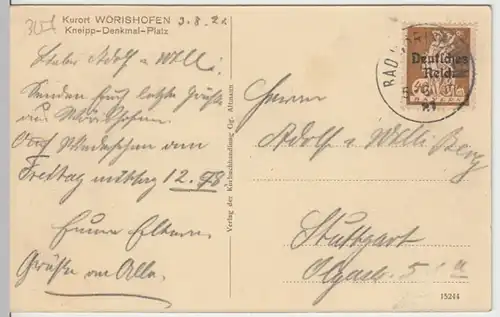 Kurort WÖRISHOFEN 3.8.21
Kneipp-Denkmal-Platz
Liebe Adolf u Willi.
Senden Euch letzte Grüße
aus Wörishofen.
Auf Wiedersehen am
Freitag mittag 12.98
Eure Eltern.
Grüße an Alle.
Verlag der Kurbuchhandlung Gg. Altmann
Deutsches
Reich
BAYERN
BAD
21
Herrn
Adolf u Willi Berg
Stuttgart
Olgastr.
15244